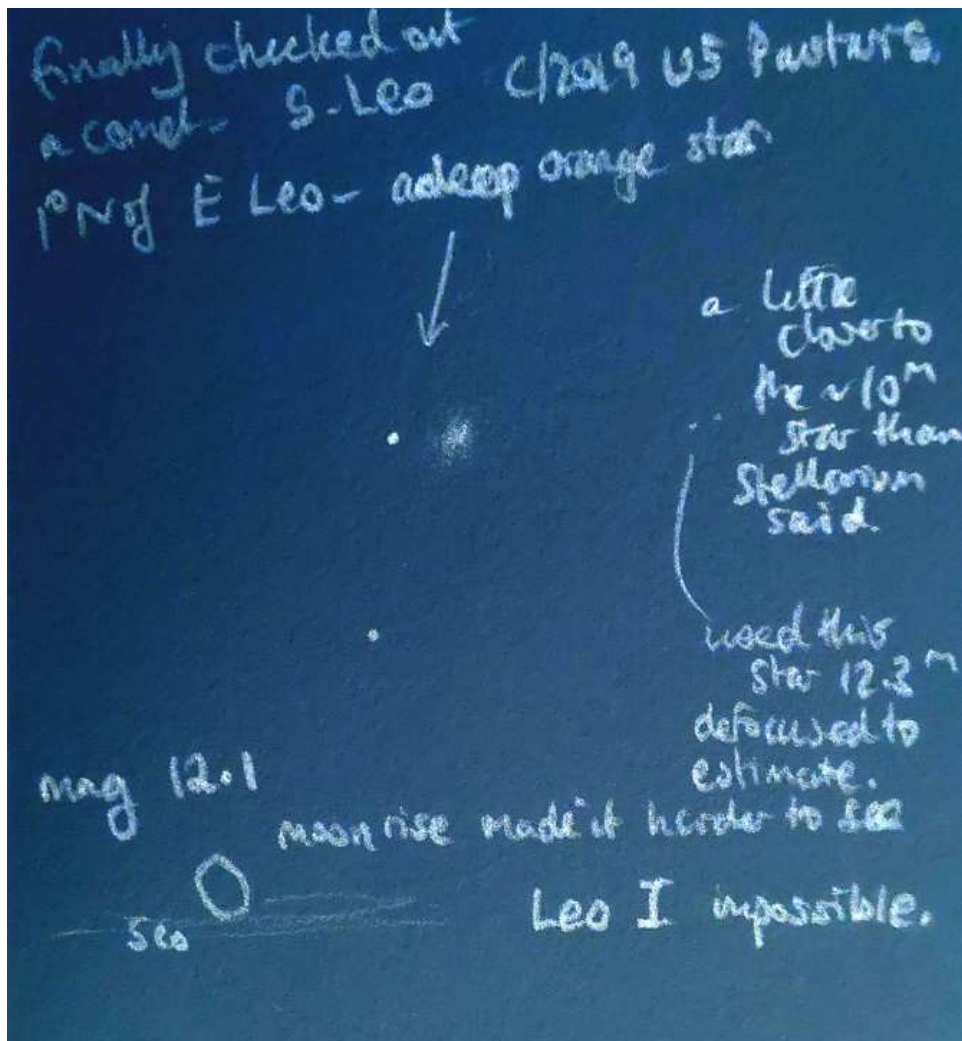 finally checked out
a comet - S-Leo C/2019 U5 Panstarrs.
1° N of E Leo - a deep orange star
a little
closer to
the ~10ᵐ
star than
Stellarium
said.
used this
star 12.3ᵐ
defocused to
estimate.
mag 12.1
moonrise made it harder to see
Leo I impossible.
Sco